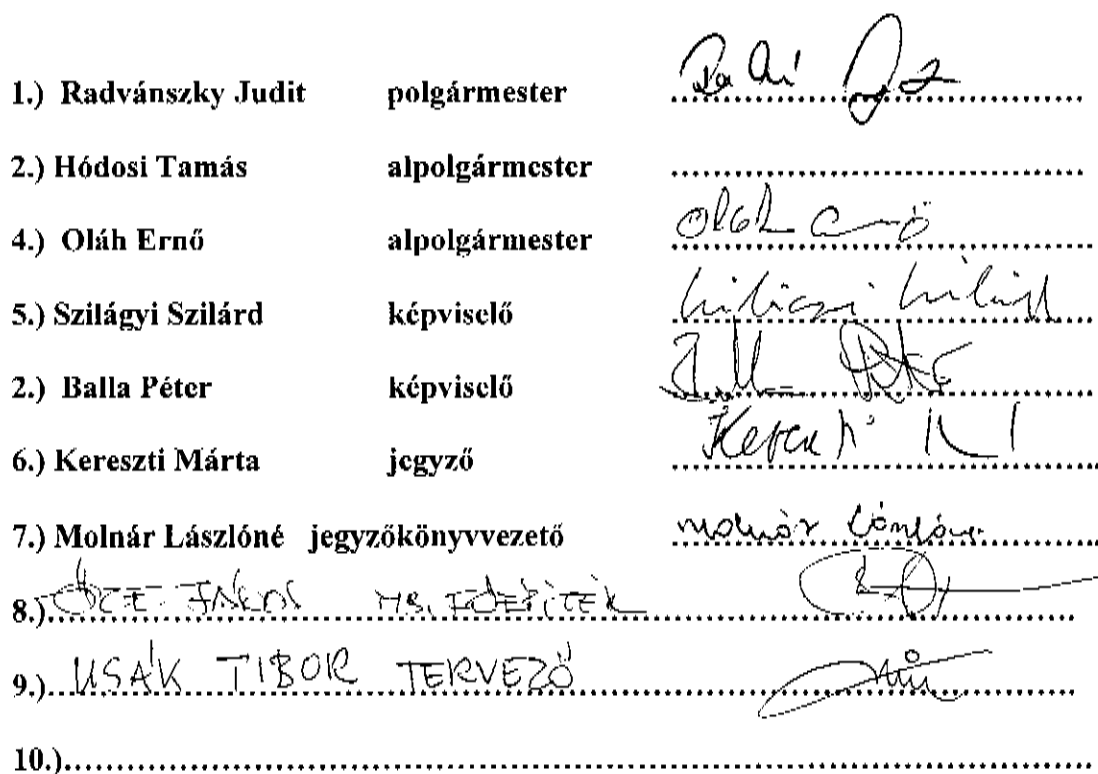 1.) Radvánszky Judit polgármester ........................................
2.) Hódosi Tamás alpolgármester ........................................
4.) Oláh Ernő alpolgármester Oláh Ernő
5.) Szilágyi Szilárd képviselő Szilágyi Szilárd
2.) Balla Péter képviselő Balla Péter
6.) Kereszti Márta jegyző Kereszti
7.) Molnár Lászlóné jegyzőkönyvvezető Molnár Lászlóné
8.)
9.) USÁK TIBOR TERVEZŐ
10.)........................................